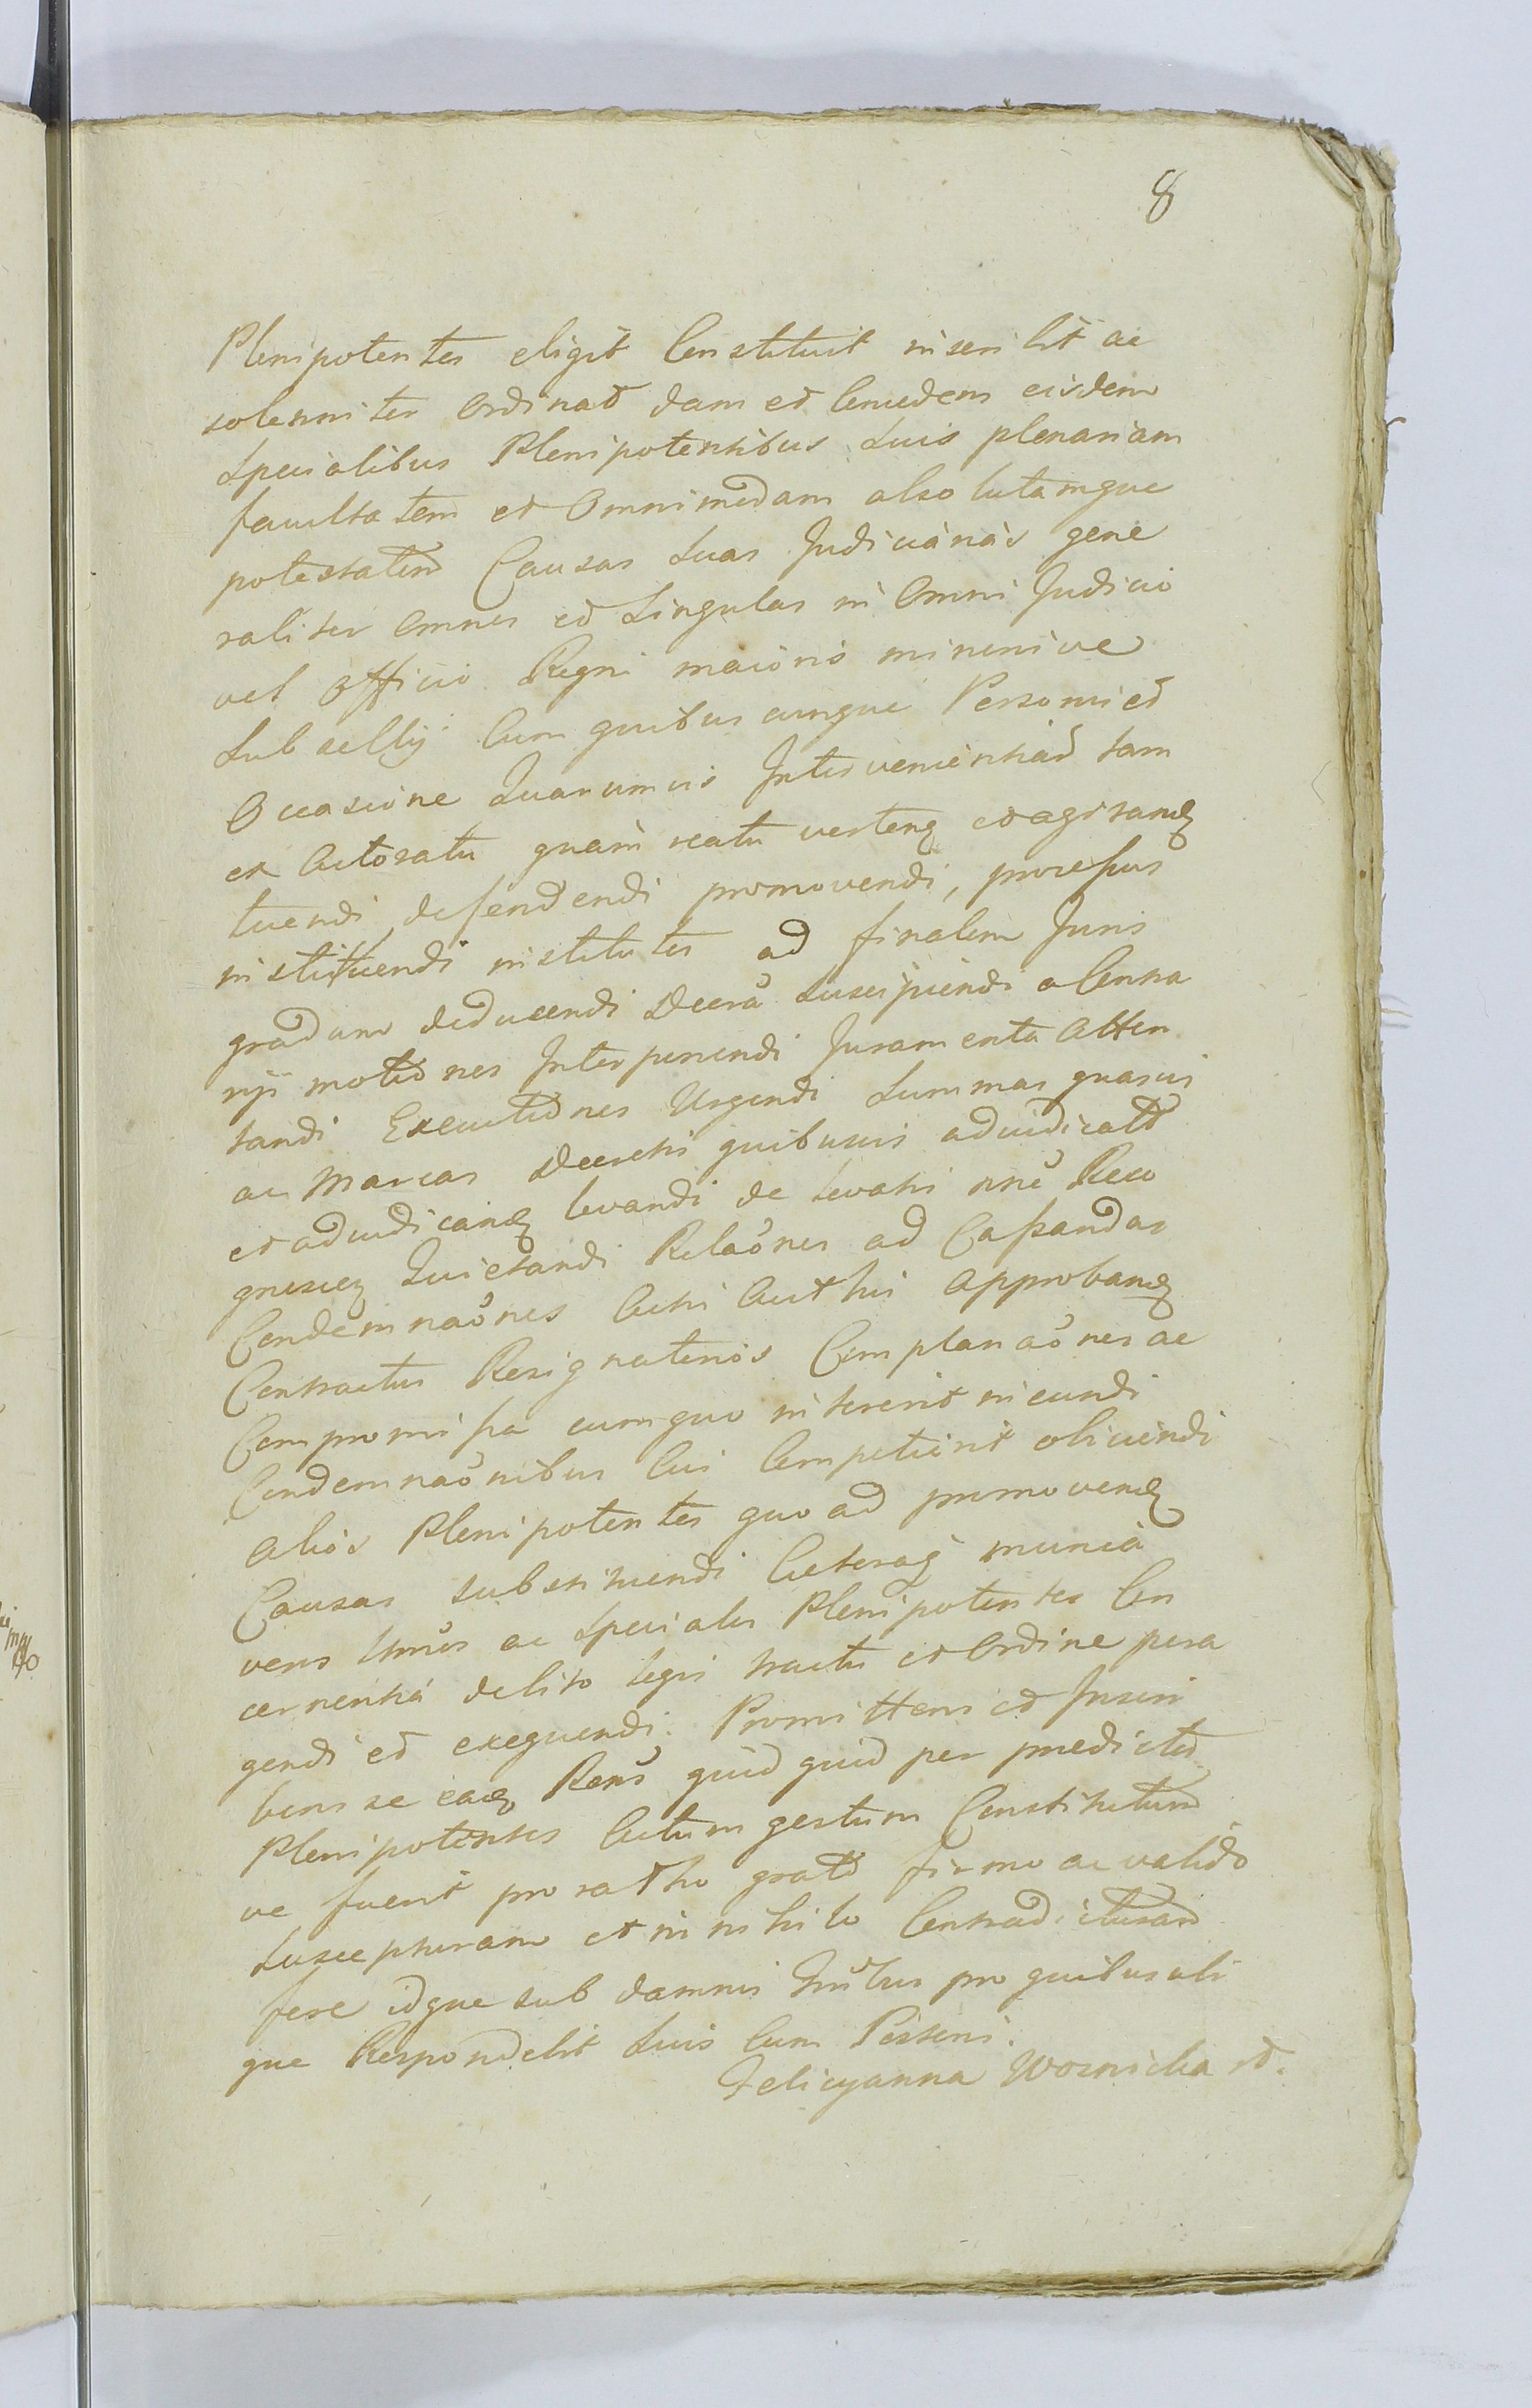 8
Plenipotentes eligit Constituit inscribit ac
solenniter Ordinat dans et Concedens eisdem
Specialibus Plenipotentibus Suis plenariam
facultatem et Omnimodam absolutamque
potestatem Causas Suas Judiciarias gene
raliter Omnes et Singulas in Omni Judicio
vel Officio Regni maioris minorisve
Subsellij Cum quibuscunque Personis et
Occasione Quarumvis Intervenientiar tam
ex Actoratu quam reatu vertenq et agitanq
tuendi, defendendi promovendi, processus
instituendi institutos ad finalem Juris
gradum deducendi Decrā Suscipiendi a Contra
rijs motiones Interponendi Juramenta Atten
tandi Executiones Urgendi Summas quasvis
ac Marcas Decretis quibusvis adiudicatas
et adiudicanq levandi de levatis nnē Reco
gnescq Quietandi Relaōnes ad Cassandas
Condemnaōnes Actis Authis Approbanq
Contractus Resignatorios Complanaōnes ac
Compromissa cumquo intererit ineundi
Condemnaōnibus Cui Competierit obiiciendi
Alios Plenipotentes quo ad promovenq
Causas substituendi Caeteraq munia
veros Lmōs ac Speciales Plenipotentes Con
cernentia debito legis tractu et Ordine pera
gendi et exequendi. Promittens et Inscri
bens se eadq Rens quid quid per praedictos
Plenipotentes Actum gestum Constitutum
ve fuerit pro ratho grato firmo ac valido
Suscepturam et in nihilo Contradicturam
fore idque sub damnis Trribus pro quibus ubi
que Respondebit Suis Cum Posteris.
Felicyanna Woznicka